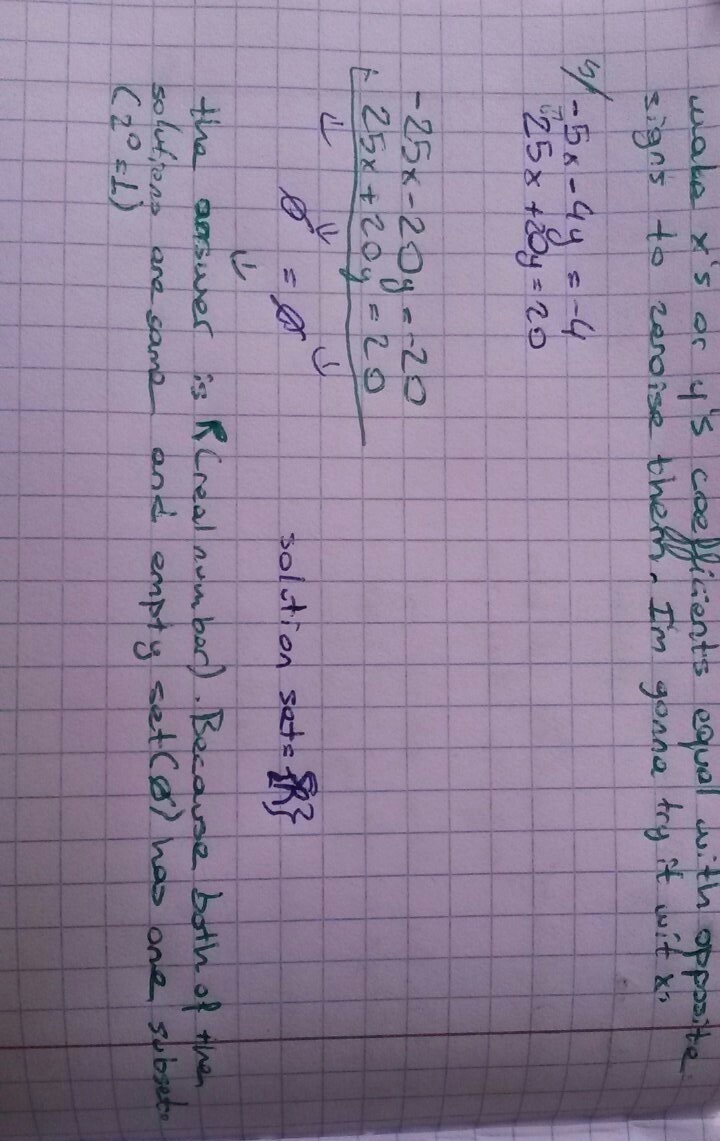 make x's or y's coefficients equal with opposite
signs to zeroise them. Im gonna try it wit x,
5/ -5x - 4y = -4
25x + 20y = 20
-25x - 20y = -20
+ 25x + 20y = 20
↓ ↓ ↓
Ø = Ø
solution set = {R}
↓
the answer is R (real number). Because both of then
solutions are same and empty set (Ø) has one subset.
(2⁰ = 1)